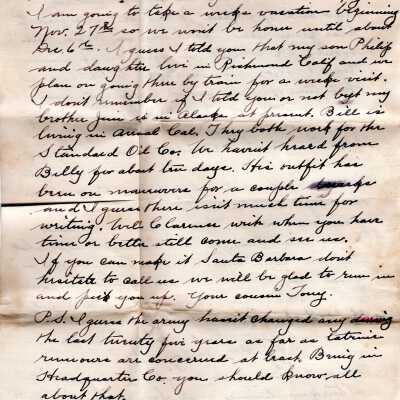 I am going to take a weeks vacation beginning
Nov. 27th so we won't be home until about
Dec 6th. I guess I told you that my son Philip
and daughter live in Richmond Calif and we
plan on going there by train for a weeks visit.
I don't remember if I told you or not but my
brother Jim is in Alaska at present. Bill is
living in Cal. They both work for the
Standard Oil Co. We havn't heard from
Billy for about ten days. His outfit has
been on maneuvers for a couple weeks
and I guess there isn't much time for
writing. Well Clarence write when you have
time or better still come and see us.
If you can make it Santa Barbara don't
hesitate to call us we will be glad to run in
and pick you up. Your cousin Tony.
P.S. I guess the army hasn't changed any during
the last twenty five years as far as latrine
rumours are concerned at least Being in
Headquarter Co. you should know all
about that.